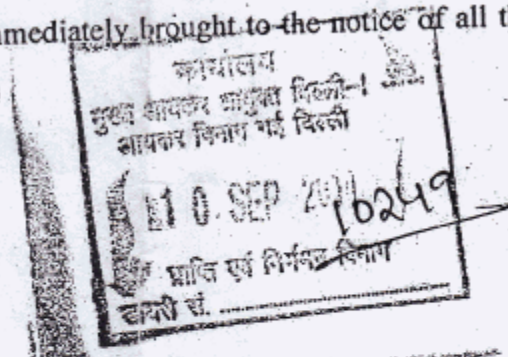 mmediately brought to the notice of all t
कार्यालय
मुख्य आयकर आयुक्त दिल्ली-I
आयकर विभाग नई दिल्ली
10 SEP
10249
प्राप्ति एवं निर्गमन विभाग
डायरी सं. ....................